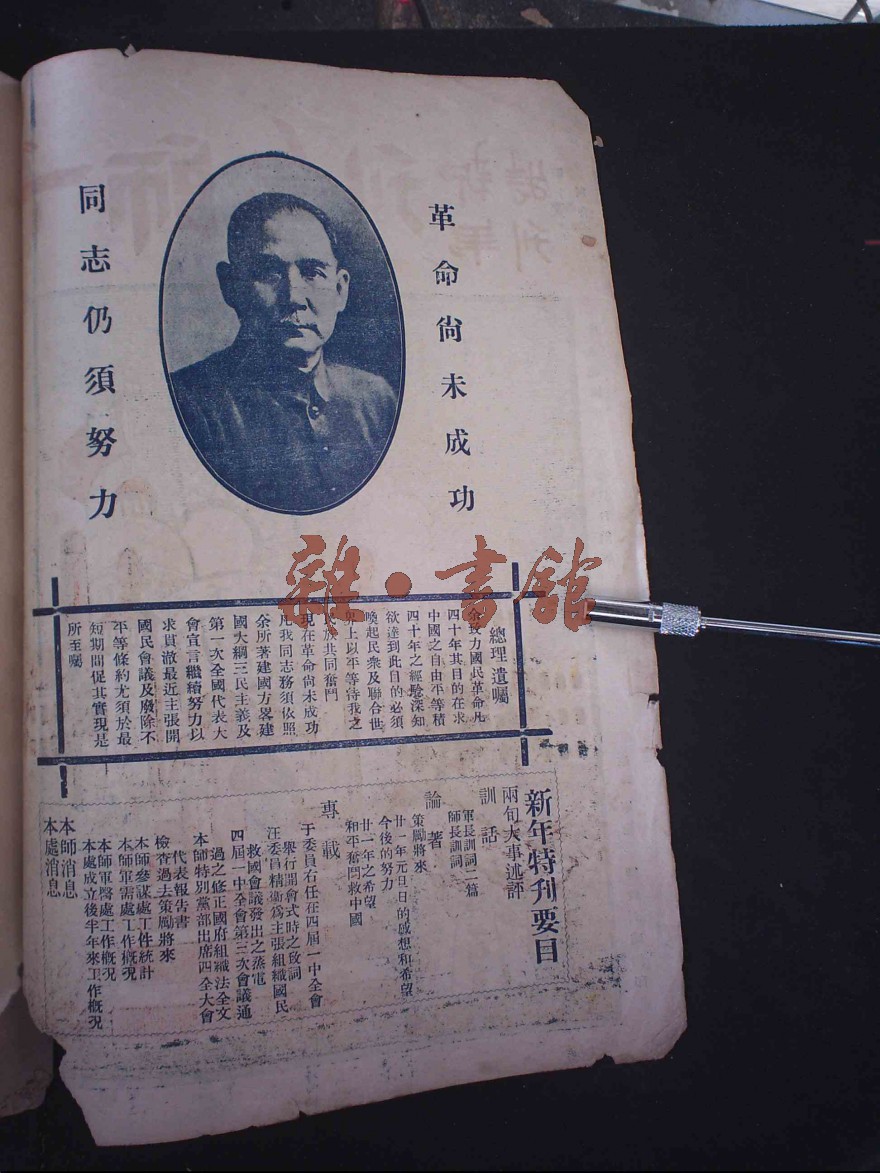 革命尙未成功
同志仍須努力
雜·書館
總理遺囑
余致力國民革命凡
四十年其目的在求
中國之自由平等積
四十年之經驗深知
欲達到此目的必須
喚起民衆及聯合世
界上以平等待我之
民族共同奮鬥
現在革命尙未成功
凡我同志務須依照
余所著建國方畧建
國大綱三民主義及
第一次全國代表大
會宣言繼續努力以
求貫澈最近主張開
國民會議及廢除不
平等條約尤須於最
短期間促其實現是
所至囑
新年特刊要目
兩旬大事述評
訓話
軍長訓詞二篇
師長訓詞
論著
策勵將來
廿一年元旦日的感想和希望
今後的努力
廿一年之希望
和平奮鬥救中國
專載
于委員右任在四屆一中全會
舉行開會式時之致詞
汪委員精衞爲主張組織國民
救國會議發出之蒸電
四屆一中全會第三次會議通
過之修正國府組織法全文
本師特別黨部出席四全大會
代表報告書
檢查過去策勵將來
本師參謀處工作統計
本師軍需處工作概况
本師軍醫處工作概况
本處成立後半年來工作概况
本師消息
本處消息